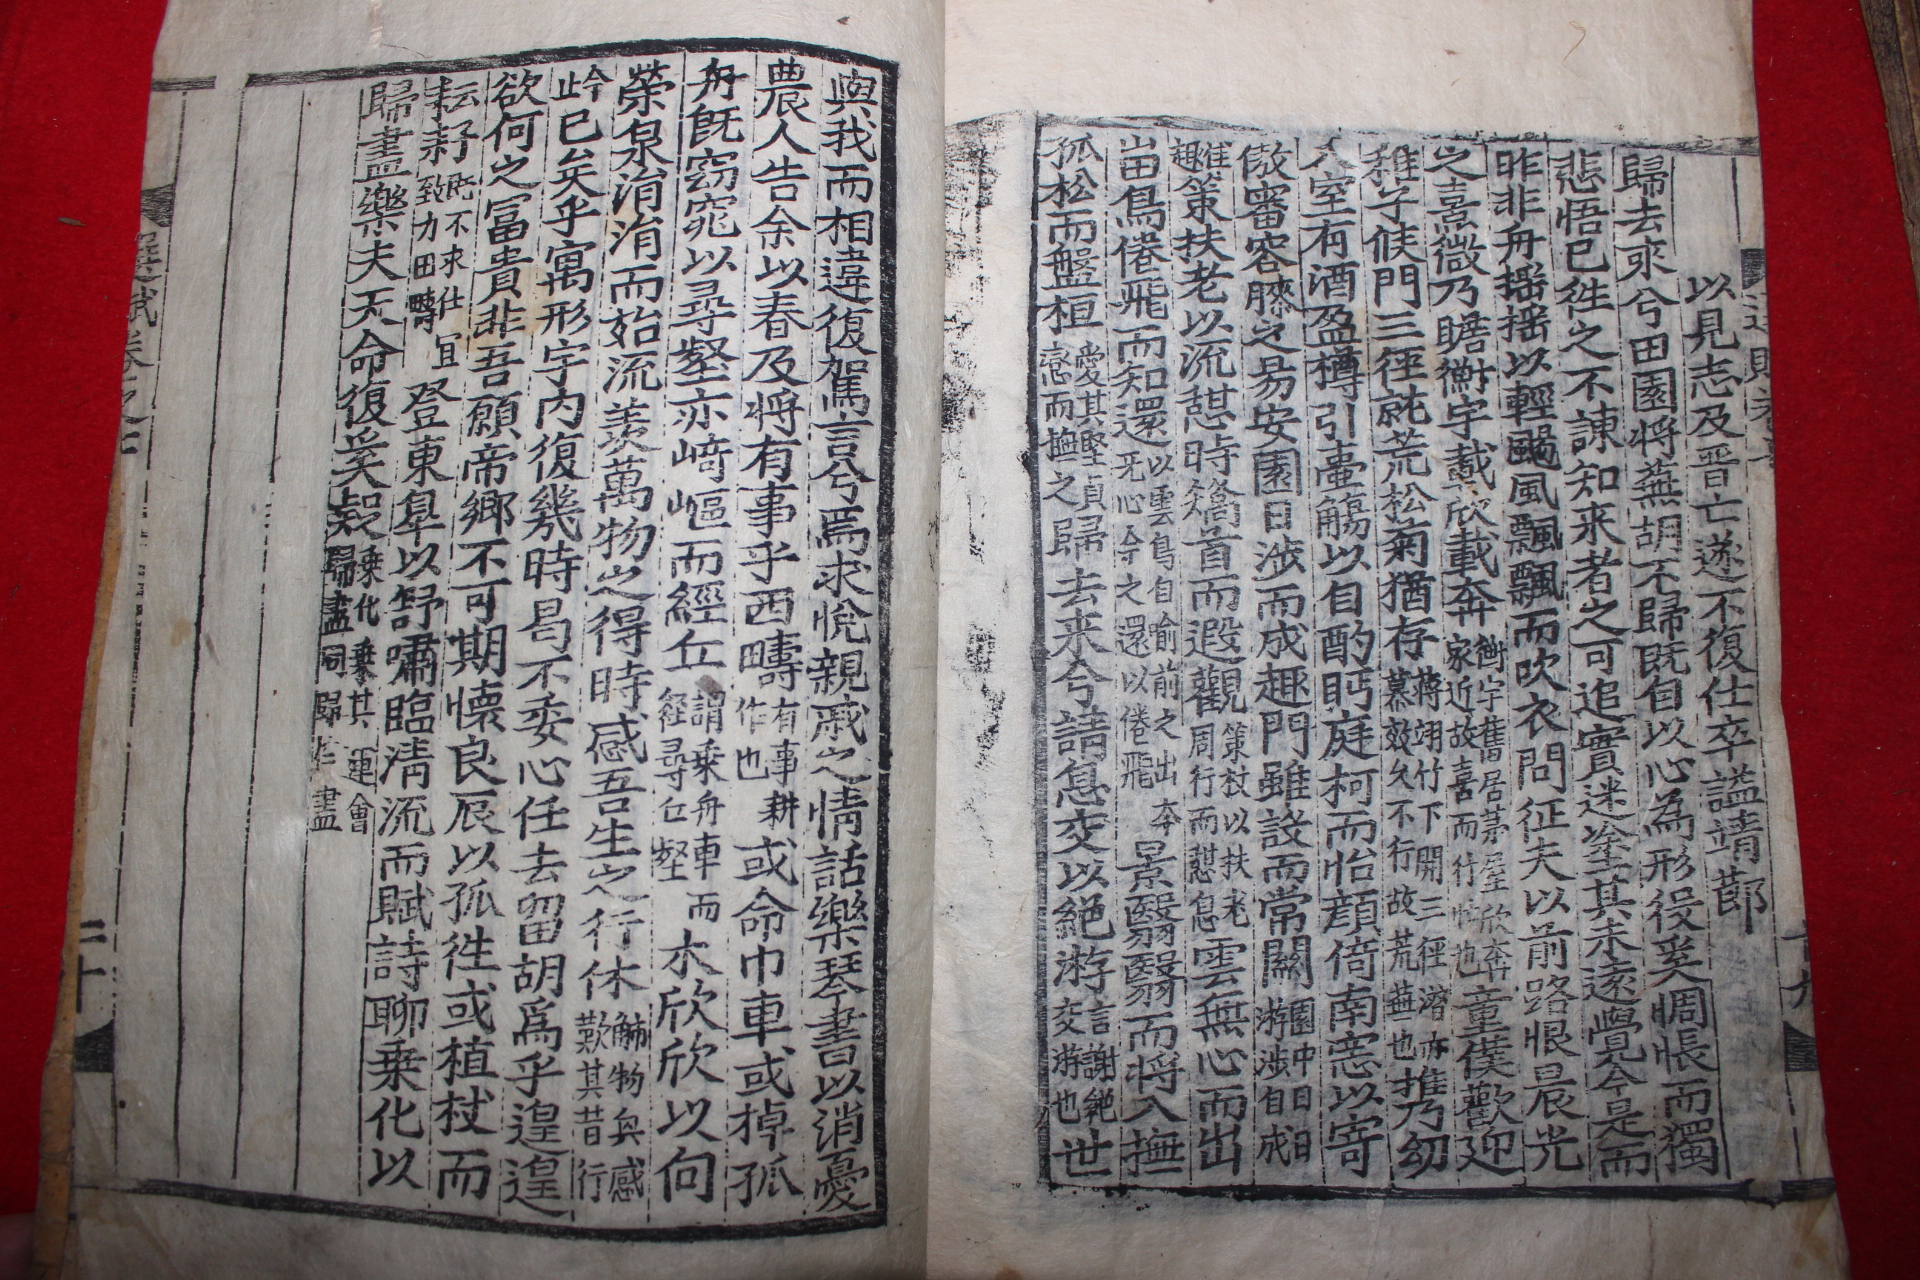 以見志及晋亡遂不復仕卒謚靖節
歸去來兮田園將蕪胡不歸旣自以心為形役奚惆悵而獨
悲悟已徃之不諫知来者之可追實迷塗其未遠覺今是而
昨非舟揺揺以輕颺風飄飄而吹衣問征夫以前路恨晨光
之熹微乃瞻衡宇載欣載奔衡宇舊居茅屋欣奔家近故喜而行忙也童僕歡迎
稚子候門三徑就荒松菊猶存蔣翊竹下開三徑潜亦慕效久不行故荒蕪也携幼
入室有酒盈樽引壷觴以自酌眄庭柯而怡顔倚南窓以寄
傲審容膝之易安園日涉而成趣門雖設而常關園中日日游涉自成
佳趣策扶老以流憩時矯首而遐觀策杖以扶老周行而憩息雲無心而出
岫鳥倦飛而知還以雲鳥自喻前之出夲旡心今之還以倦飛景翳翳而將入撫
孤松而盤桓愛其堅貞戀而撫之歸去来兮請息交以絶游言謝絶交游也世
十九
與我而相違復駕言兮焉求悅親戚之情話樂琴書以消憂
農人告余以春及將有事乎西疇有事耕作也或命巾車或掉孤
舟旣窈窕以尋壑亦﨑嶇而經丘謂乗舟車而経尋丘壑木欣欣以向
榮泉涓涓而始流羡萬物之得時感吾生之行休觸物興感歎其昔行
今止已矣乎寓形宇内復幾時曷不委心任去留胡爲乎遑遑
欲何之冨貴非吾願帝鄉不可期懷良辰以孤徃或植杖而
耘耔旣不求仕宜致力田疇登東臯以舒嘯臨淸流而賦詩聊乗化以
歸盡樂夫天命復奚疑乗化乗其運會歸盡同歸於盡
選賦卷之七
二十